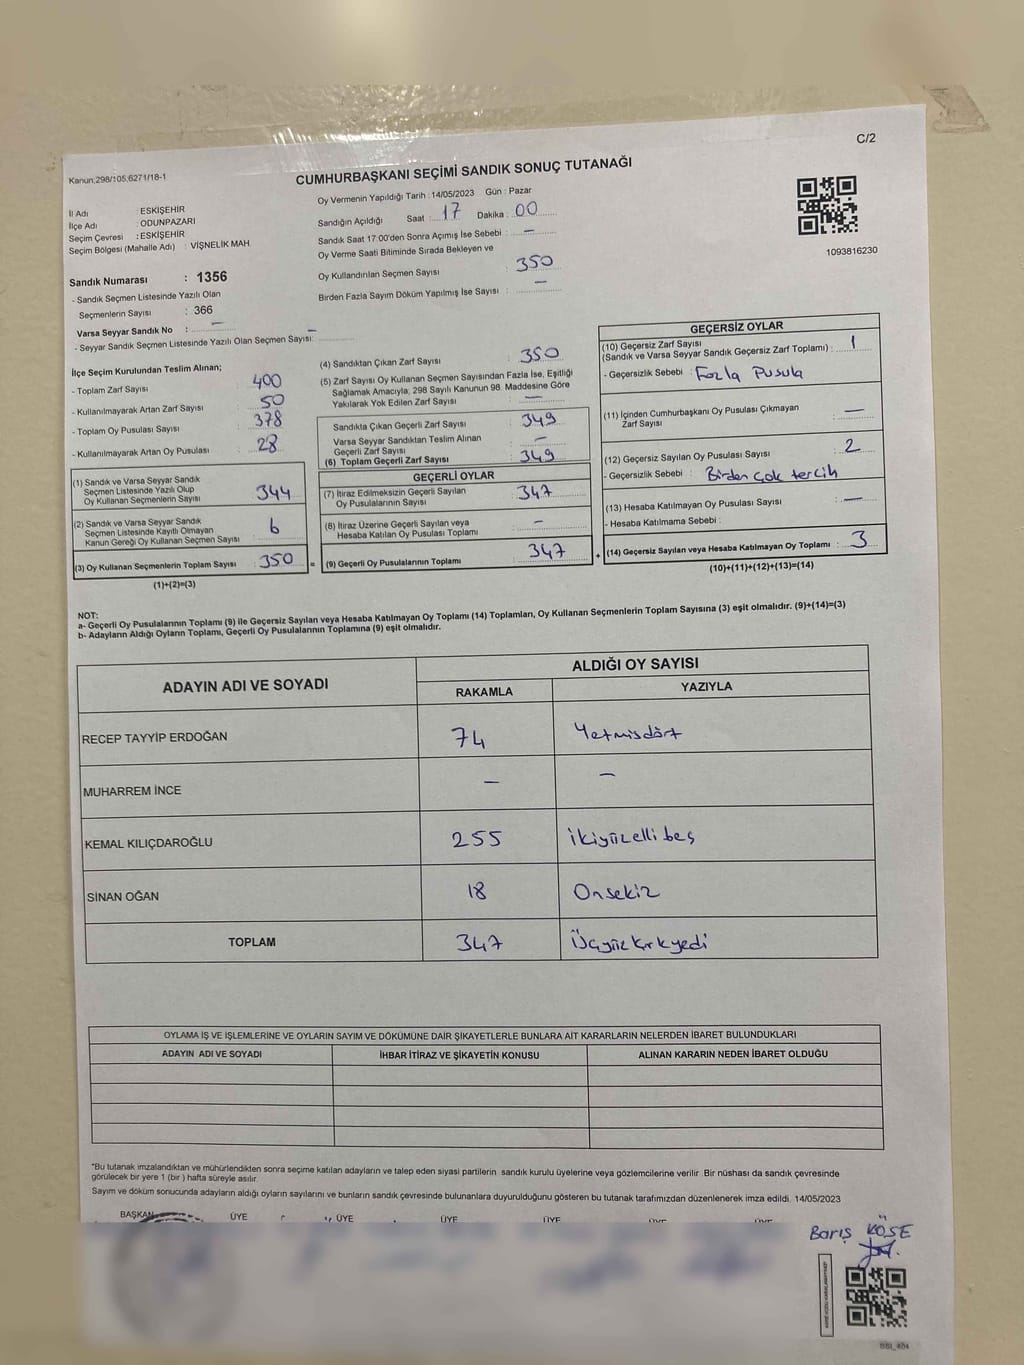 C/2
Kanun:298/105.6271/18-1
CUMHURBAŞKANI SEÇİMİ SANDIK SONUÇ TUTANAĞI
İl Adı : ESKİŞEHİR
İlçe Adı : ODUNPAZARI
Seçim Çevresi : ESKİŞEHİR
Seçim Bölgesi (Mahalle Adı) : VİŞNELİK MAH.
Sandık Numarası : 1356
- Sandık Seçmen Listesinde Yazılı Olan
Seçmenlerin Sayısı : 366
Varsa Seyyar Sandık No : —
- Seyyar Sandık Seçmen Listesinde Yazılı Olan Seçmen Sayısı: —
Oy Vermenin Yapıldığı Tarih : 14/05/2023 Gün : Pazar
Sandığın Açıldığı Saat : 17 Dakika : 00
Sandık Saat 17:00'den Sonra Açımış İse Sebebi : —
Oy Verme Saati Bitiminde Sırada Bekleyen ve
Oy Kullandırılan Seçmen Sayısı : 350
Birden Fazla Sayım Döküm Yapılmış İse Sayısı : —
1093816230
İlçe Seçim Kurulundan Teslim Alınan;
- Toplam Zarf Sayısı : 400
- Kullanılmayarak Artan Zarf Sayısı : 50
- Toplam Oy Pusulası Sayısı : 378
- Kullanılmayarak Artan Oy Pusulası : 28
(1) Sandık ve Varsa Seyyar Sandık
Seçmen Listesinde Yazılı Olup
Oy Kullanan Seçmenlerin Sayısı : 344
(2) Sandık ve Varsa Seyyar Sandık
Seçmen Listesinde Kayıtlı Olmayan
Kanun Gereği Oy Kullanan Seçmen Sayısı : 6
(3) Oy Kullanan Seçmenlerin Toplam Sayısı : 350
(1)+(2)=(3)
(4) Sandıktan Çıkan Zarf Sayısı : 350
(5) Zarf Sayısı Oy Kullanan Seçmen Sayısından Fazla İse, Eşitliği
Sağlamak Amacıyla, 298 Sayılı Kanunun 98. Maddesine Göre
Yakılarak Yok Edilen Zarf Sayısı : —
Sandıkta Çıkan Geçerli Zarf Sayısı : 349
Varsa Seyyar Sandıktan Teslim Alınan
Geçerli Zarf Sayısı : —
(6) Toplam Geçerli Zarf Sayısı : 349
GEÇERLİ OYLAR
(7) İtiraz Edilmeksizin Geçerli Sayılan
Oy Pusulalarının Sayısı : 347
(8) İtiraz Üzerine Geçerli Sayılan veya
Hesaba Katılan Oy Pusulası Toplamı : —
= (9) Geçerli Oy Pusulalarının Toplamı : 347
GEÇERSİZ OYLAR
(10) Geçersiz Zarf Sayısı
(Sandık ve Varsa Seyyar Sandık Geçersiz Zarf Toplamı) : 1
- Geçersizlik Sebebi : Fazla Pusula
(11) İçinden Cumhurbaşkanı Oy Pusulası Çıkmayan
Zarf Sayısı : —
(12) Geçersiz Sayılan Oy Pusulası Sayısı : 2
- Geçersizlik Sebebi : Birden çok tercih
(13) Hesaba Katılmayan Oy Pusulası Sayısı : —
- Hesaba Katılmama Sebebi :
+ (14) Geçersiz Sayılan veya Hesaba Katılmayan Oy Toplamı : 3
(10)+(11)+(12)+(13)=(14)
NOT:
a- Geçerli Oy Pusulalarının Toplamı (9) ile Geçersiz Sayılan veya Hesaba Katılmayan Oy Toplamı (14) Toplamları, Oy Kullanan Seçmenlerin Toplam Sayısına (3) eşit olmalıdır. (9)+(14)=(3)
b- Adayların Aldığı Oyların Toplamı, Geçerli Oy Pusulalarının Toplamına (9) eşit olmalıdır.
ADAYIN ADI VE SOYADI
ALDIĞI OY SAYISI
RAKAMLA YAZIYLA
RECEP TAYYİP ERDOĞAN 74 Yetmişdört
MUHARREM İNCE — —
KEMAL KILIÇDAROĞLU 255 ikiyüzellibeş
SİNAN OĞAN 18 Onsekiz
TOPLAM 347 Üçyüzkırkyedi
OYLAMA İŞ VE İŞLEMLERİNE VE OYLARIN SAYIM VE DÖKÜMÜNE DAİR ŞİKAYETLERLE BUNLARA AİT KARARLARIN NELERDEN İBARET BULUNDUKLARI
ADAYIN ADI VE SOYADI İHBAR İTİRAZ VE ŞİKAYETİN KONUSU ALINAN KARARIN NEDEN İBARET OLDUĞU
"Bu tutanak imzalandıktan ve mühürlendikten sonra seçime katılan adayların ve talep eden siyasi partilerin sandık kurulu üyelerine veya gözlemcilerine verilir. Bir nüshası da sandık çevresinde
görülecek bir yere 1 (bir) hafta süreyle asılır.
Sayım ve döküm sonucunda adayların aldığı oyların sayılarını ve bunların sandık çevresinde bulunanlara duyurulduğunu gösteren bu tutanak tarafımızdan düzenlenerek imza edildi. 14/05/2023
BAŞKAN ÜYE ÜYE ÜYE ÜYE
Barış KÖSE